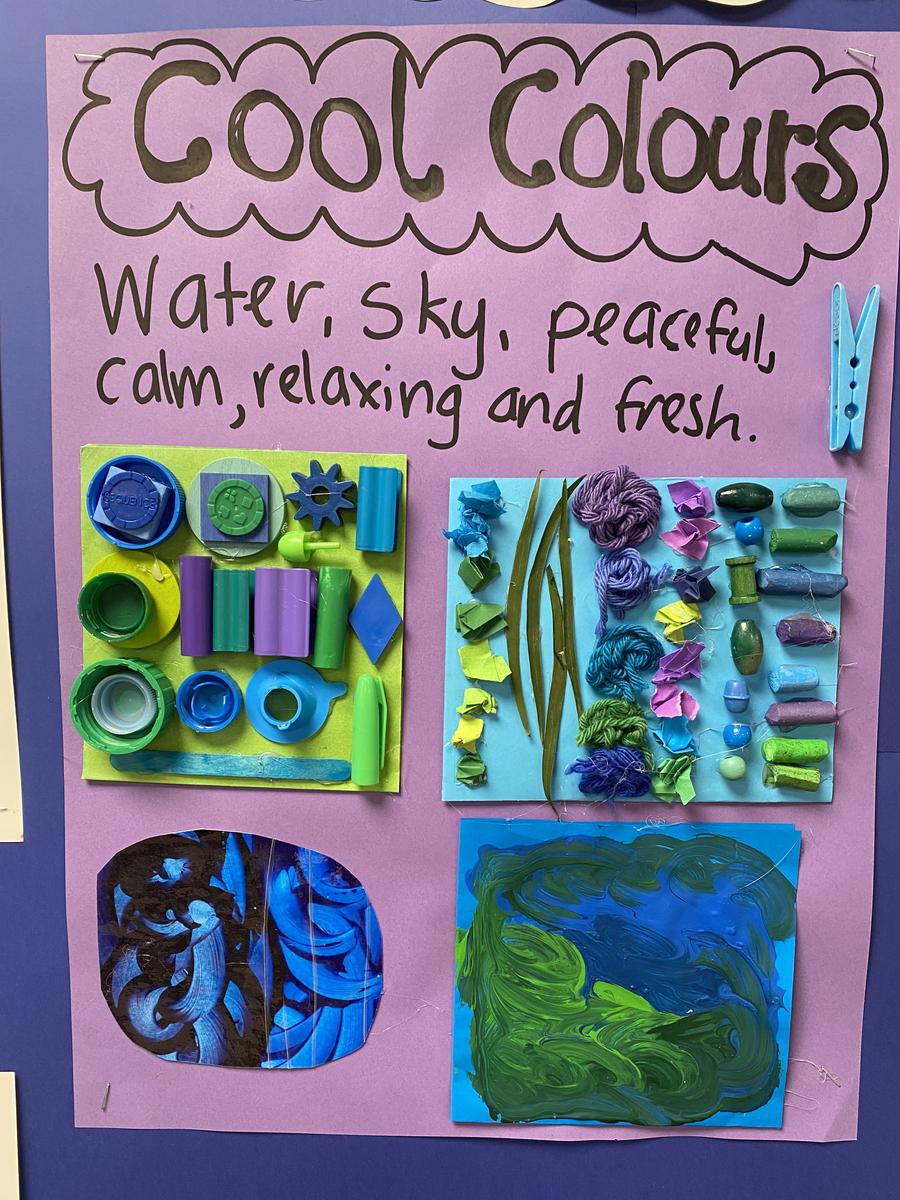 Cool Colours
Water, Sky, peaceful,
calm, relaxing and fresh.
SEQUENCE